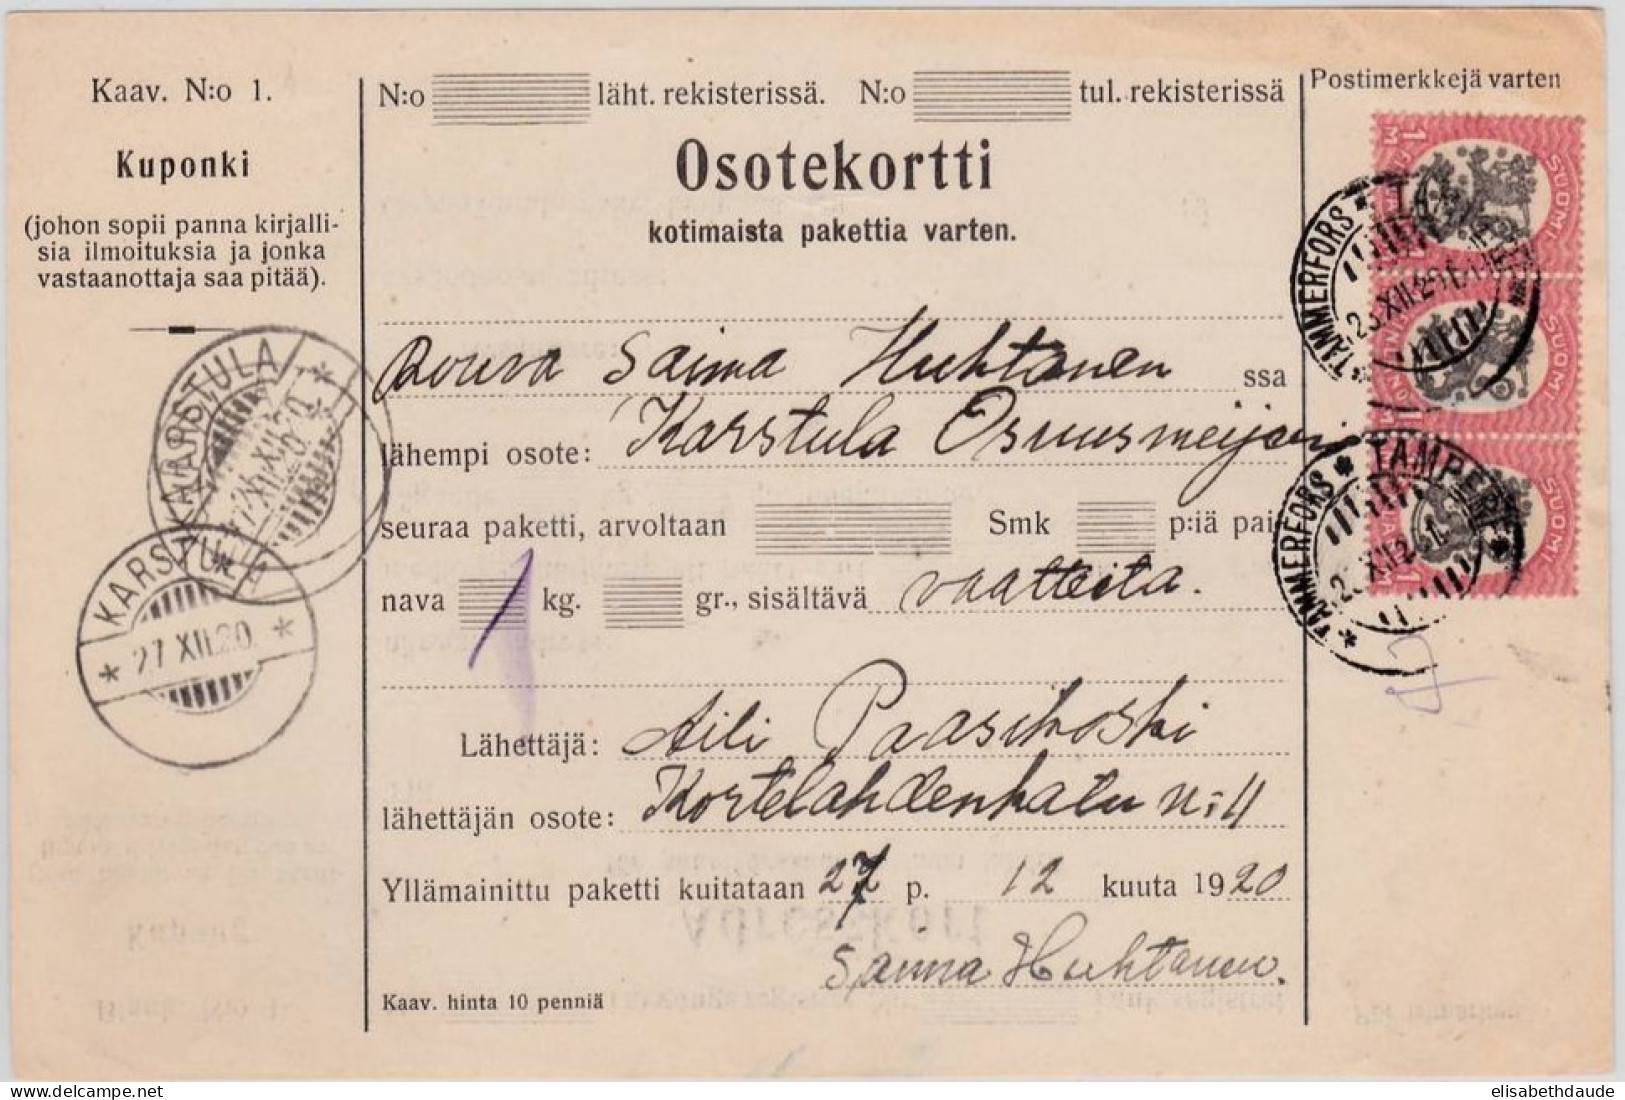 Kaav. N:o 1.
Kuponki
(johon sopii panna kirjalli-
sia ilmoituksia ja jonka
vastaanottaja saa pitää).
KARSTULA
KARSTULA
27 XII.20.
N:o läht. rekisterissä. N:o tul. rekisterissä
Osotekortti
kotimaista pakettia varten.
Rouva Saima Huhtanen ssa
lähempi osote: Karstula Osuusmeijeri
seuraa paketti, arvoltaan Smk p:iä pai-
nava 1 kg. gr., sisältävä vaatteita.
Lähettäjä: Aili Paasikoski
lähettäjän osote: Kortelahdenkatu n:4
Yllämainittu paketti kuitataan 27 p. 12 kuuta 1920
Sanna Huhtanen.
Kaav. hinta 10 penniä
Postimerkkejä varten
1 M SUOMI
1 M SUOMI
1 M SUOMI
TAMMERFORS
TAMMERFORS * TAMPERE *
Adresskort
Kupong
elisabethdaude